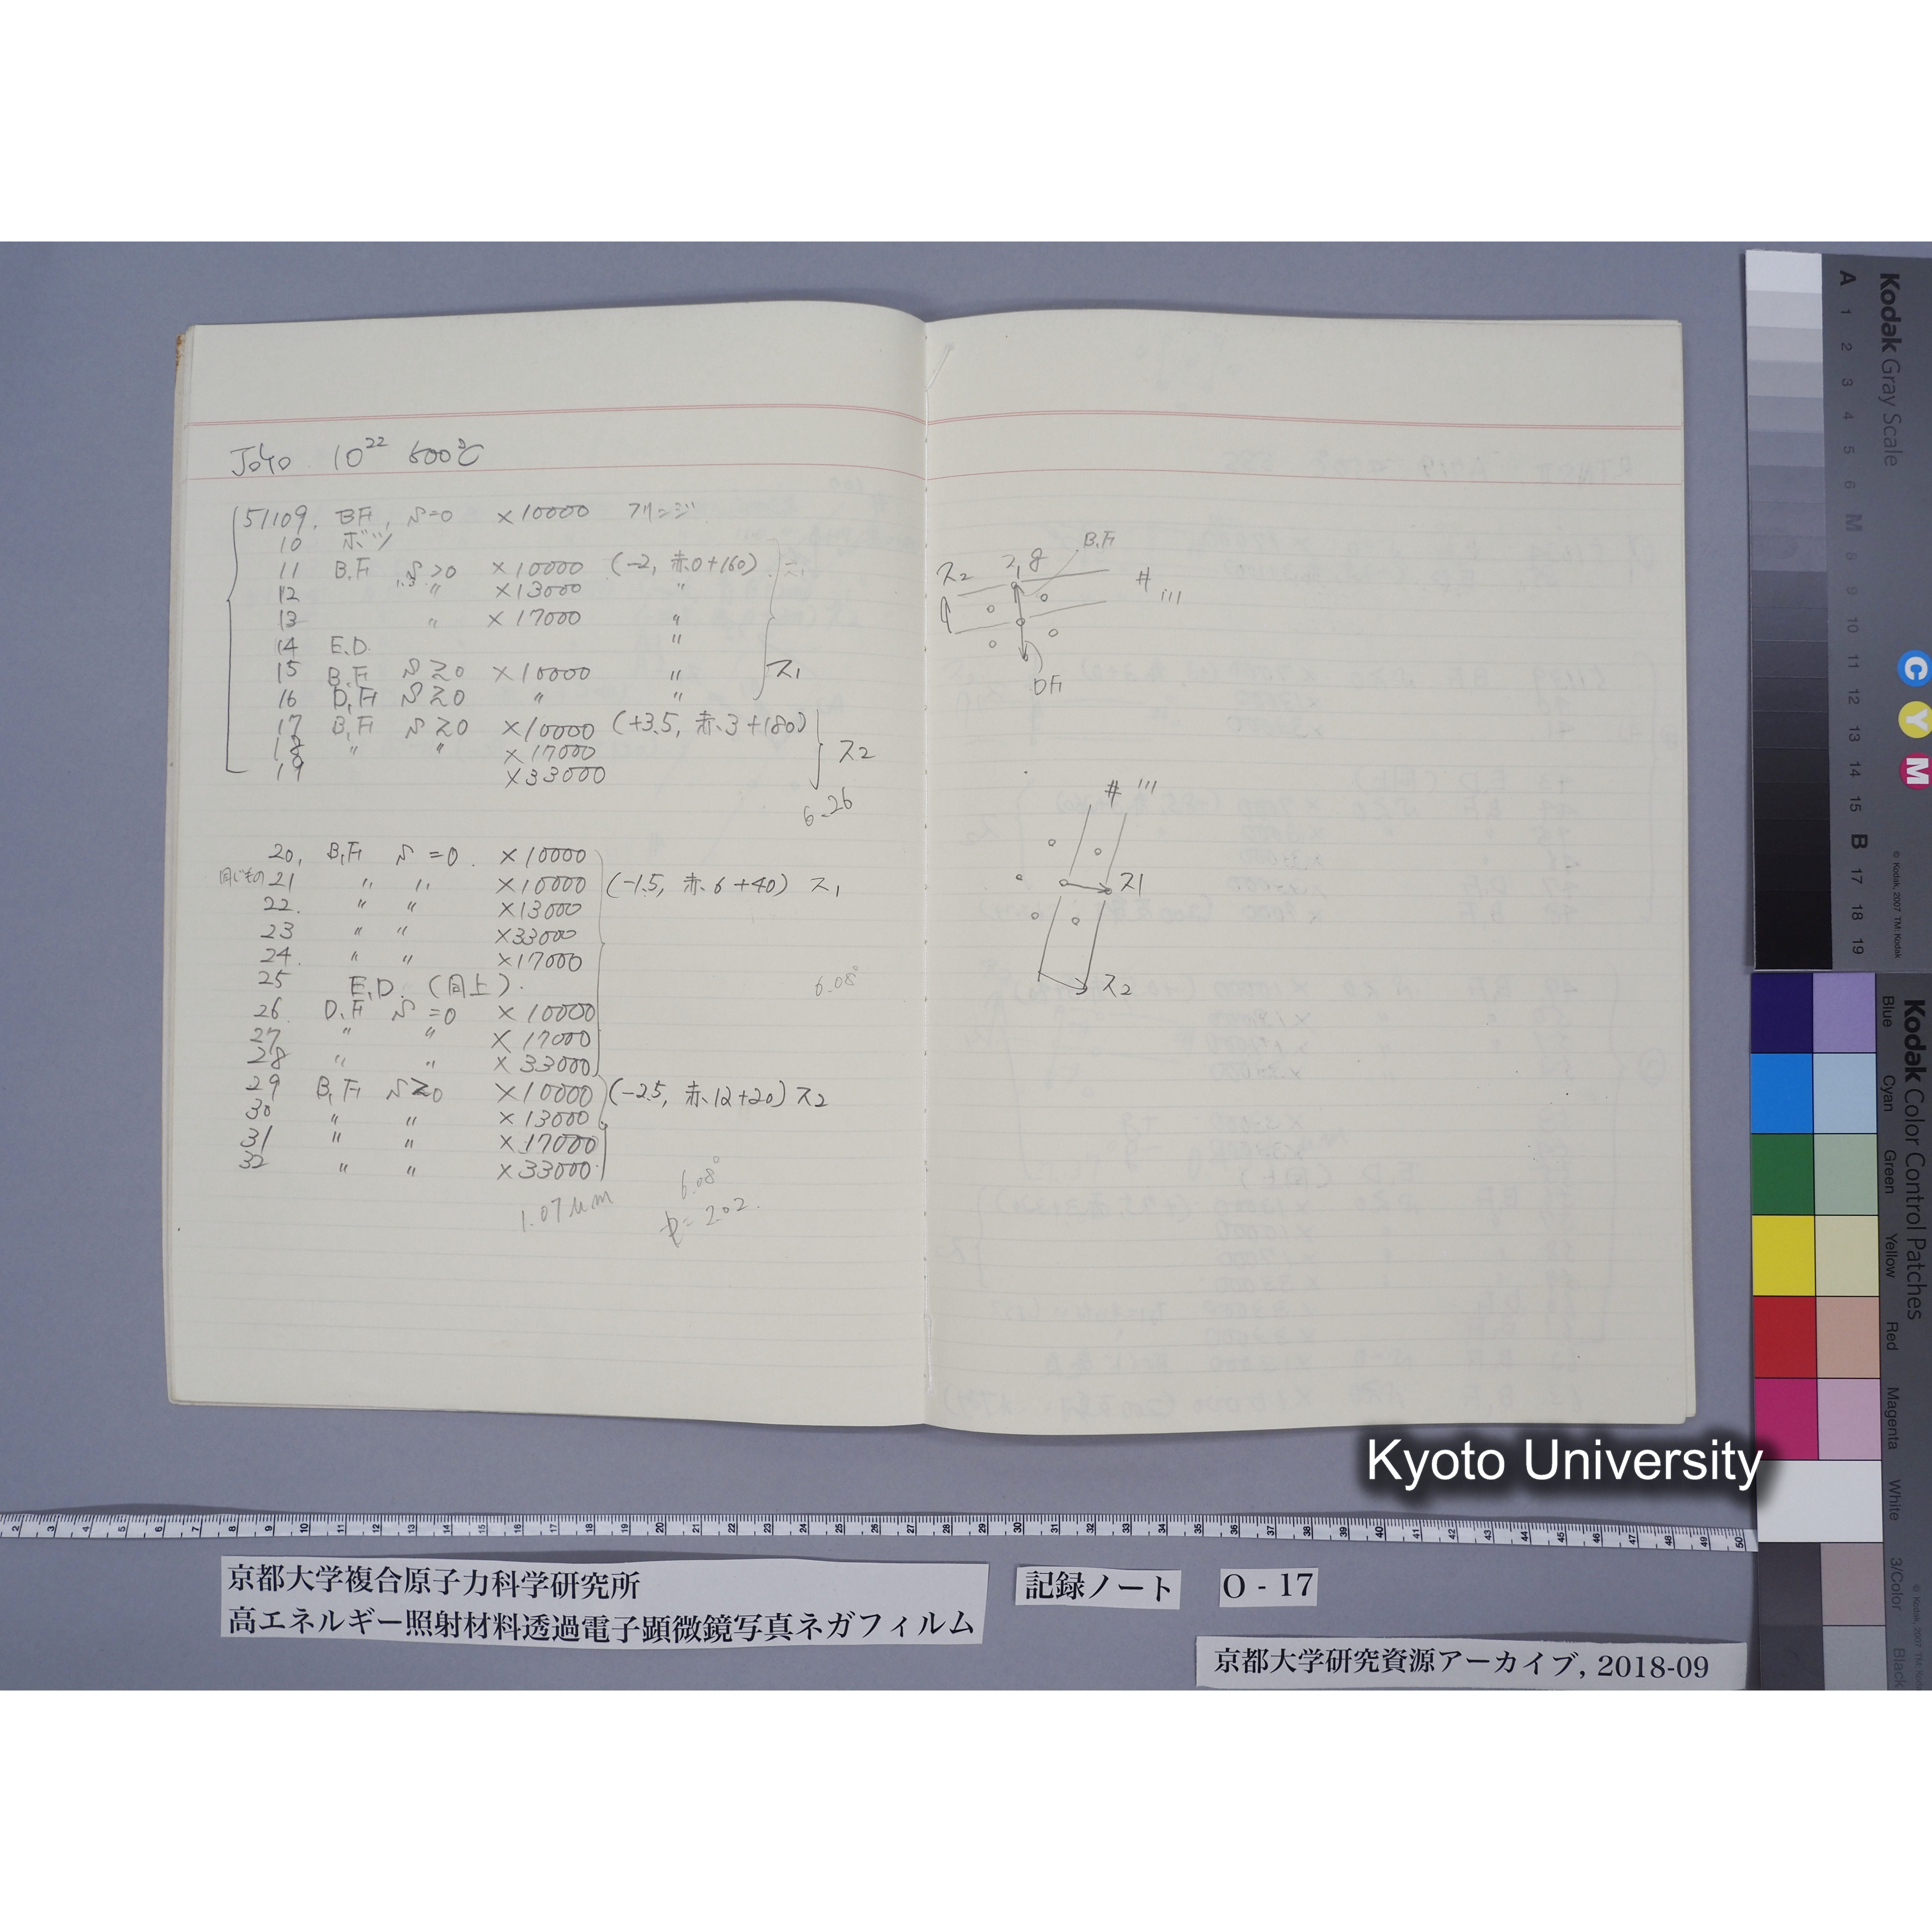 JOYO 10²² 600℃
51109, B.F, S=0 ×10000 フリンジ
10 ボツ
11 B.F S>0 ×10000 (-2, 赤0+160)
12 〃 ×13000 〃
13 〃 ×17000 〃
14 E.D. 〃
15 B.F S≥0 ×10000 〃
ス1
16 D.F S≥0 〃 〃
17 B.F S≥0 ×10000 (+3.5, 赤3+180)
18 〃 〃 ×17000
ス2
19 ×33000
6.26
20, B.F S=0. ×10000
同じもの 21 〃 〃 ×10000 (-1.5, 赤6+40) ス1
22. 〃 〃 ×13000
23 〃 〃 ×33000
24. 〃 〃 ×17000
25 E.D. (同上).
6.08°
26. D.F S=0 ×10000
27 〃 〃 ×17000
28 〃 〃 ×33000
29 B.F S≥0 ×10000 (-2.5, 赤12+20) ス2
30 〃 〃 ×13000
31 〃 〃 ×17000
32 〃 〃 ×33000
6.08°
1.07μm
p=2.02.
B.F
ス2 ス1 g
# 111
DF
# 111
ス1
ス2
Kyoto University
2 3 4 5 6 7 8 9 10 11 12 13 14 15 16 17 18 19 20 21 22 23 24 25 26 27 28 29 30 31 32 33 34 35 36 37 38 39 40 41 42 43 44 45 46 47 48 49 50
京都大学複合原子力科学研究所
高エネルギー照射材料透過電子顕微鏡写真ネガフィルム
記録ノート
O - 17
京都大学研究資源アーカイブ, 2018-09
Kodak Gray Scale
A 1 2 3 4 5 6 M 8 9 10 11 12 13 14 15 B 17 18 19
C Y M
© Kodak, 2007 TM: Kodak
Kodak Color Control Patches
Blue Cyan Green Yellow Red Magenta White 3/Color Black